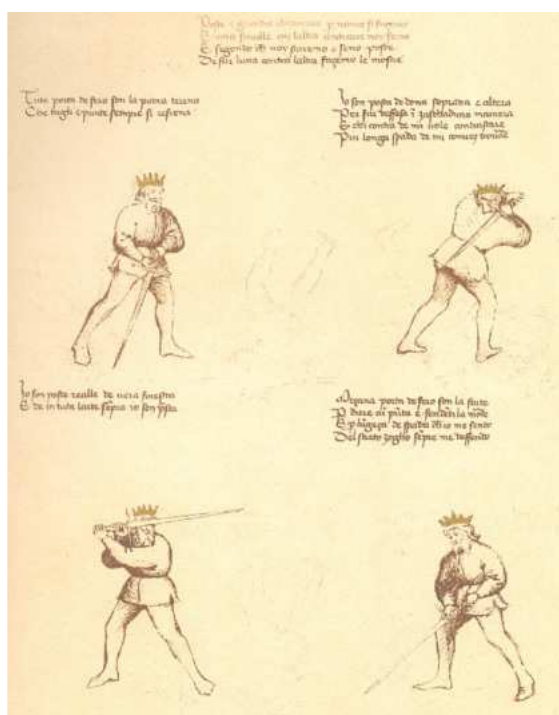 Poste e guardie chiamare per nome si façemo
E una simille cum laltra contrarie noy semo
E segondo che noy staremo e semo poste
De far luna contra laltra façemo le mostre
Tuta porta de fero son la piana terrena
Che tagli e punte sempre si refrena
Io son posta de dona soprana e altera
Per far deffesa in zaschaduna mainera
E chi contra de mi uole contrastare
Piu longa spada de mi conuen trouare
Io son posta realle de uera finestra
E de in tuta larte sempre io son presta
Meçana porta de fero son la forte
Per dare cum punta e fendente la morte
E per lungeça de spada che io me sento
Del streto zogho sempre me deffendo